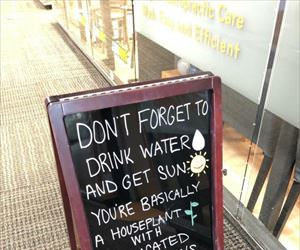 Care
and Efficient
DON'T FORGET TO
DRINK WATER
AND GET SUN
YOU'RE BASICALLY
A HOUSEPLANT
WITH